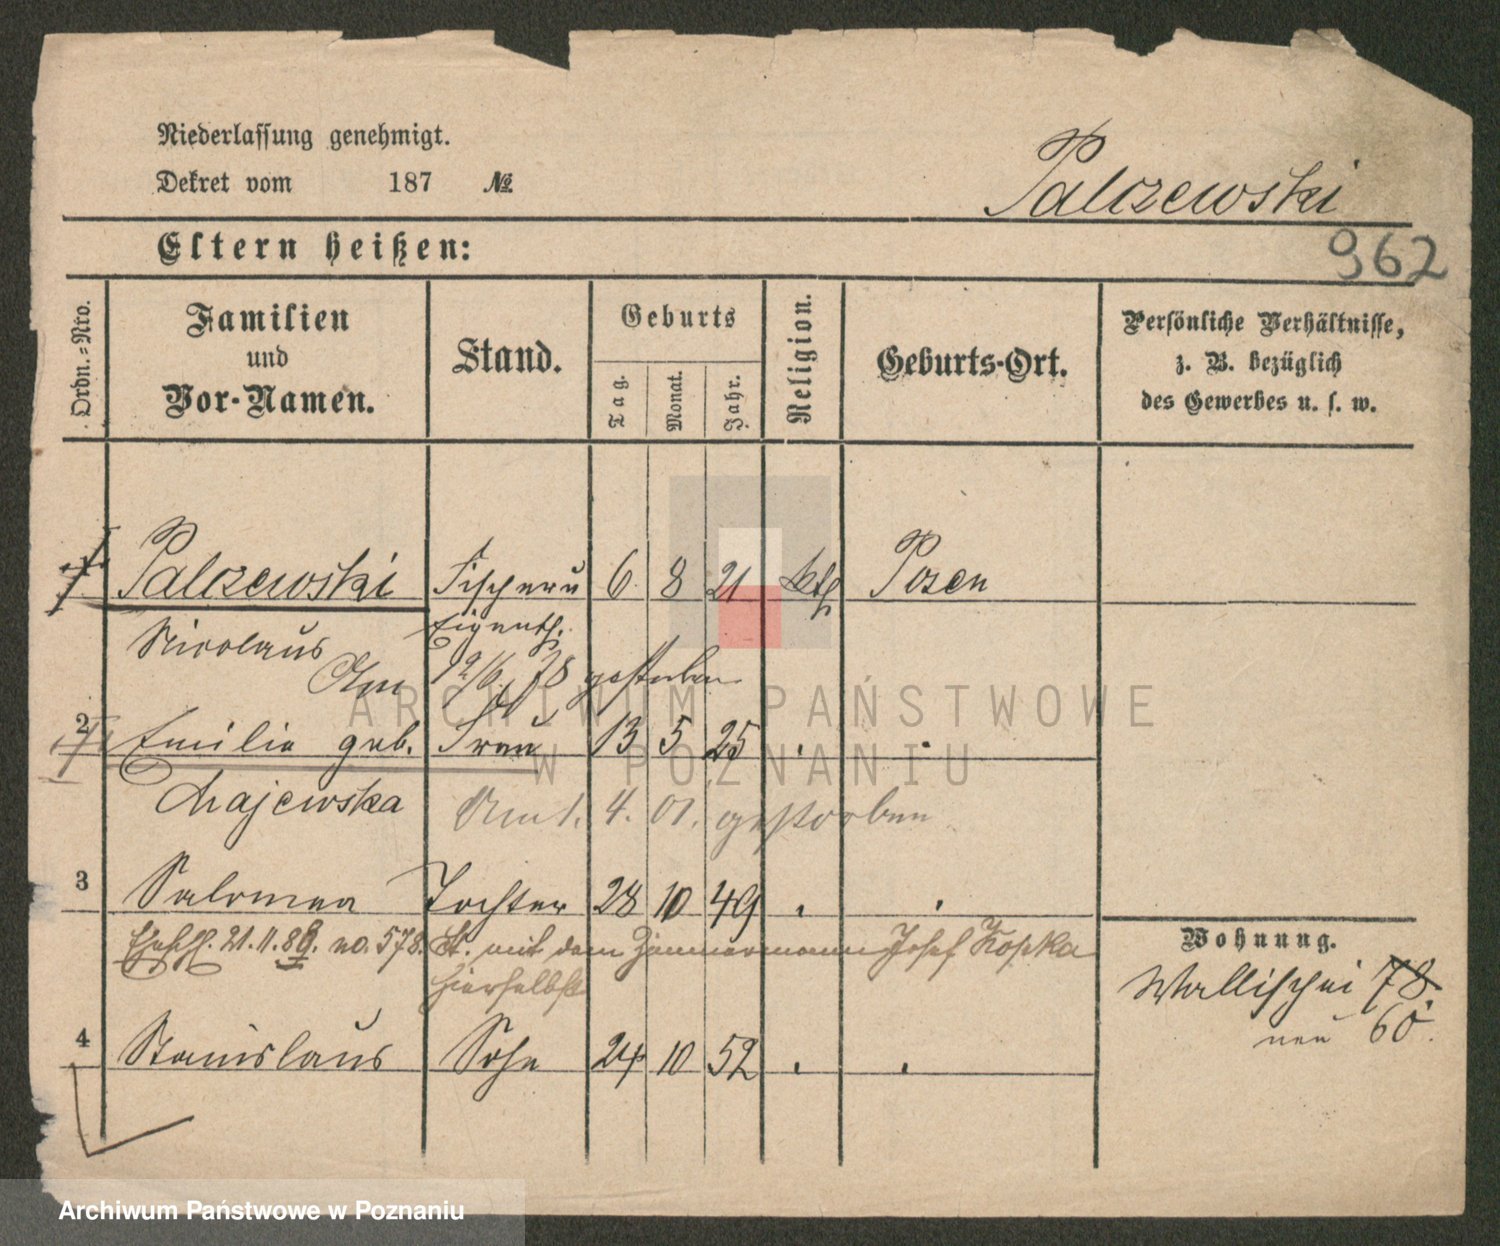 Niederlassung genehmigt.
Dekret vom 187 №
Palczewski
Eltern heißen:
962
Ordn.-Nro.
Familien
und
Vor-Namen.
Stand.
Geburts
Tag.
Monat.
Jahr.
Religion.
Geburts-Ort.
Persönliche Verhältnisse,
z. B. bezüglich
des Gewerbes u. s. w.
1 Palczewski Fischerei 6 8 21 kath Posen
Nicolaus Eigenth.
Am 12/6 78 gestorben
2 Emilie geb. Frau 13 5 25 . .
Majewska
Am 1. 4. 01. gestorben
3 Salomea Tochter 28 10 49 . .
Eheschl. 21.11.89. no. 578. St. mit dem Zimmermann Josef Kopka
hierselbst
4 Stanislaus Sohn 24 10 52 . .
Wohnung.
Wallischei 78.
neu 60.
ARCHIWUM PAŃSTWOWE
W POZNANIU
Archiwum Państwowe w Poznaniu